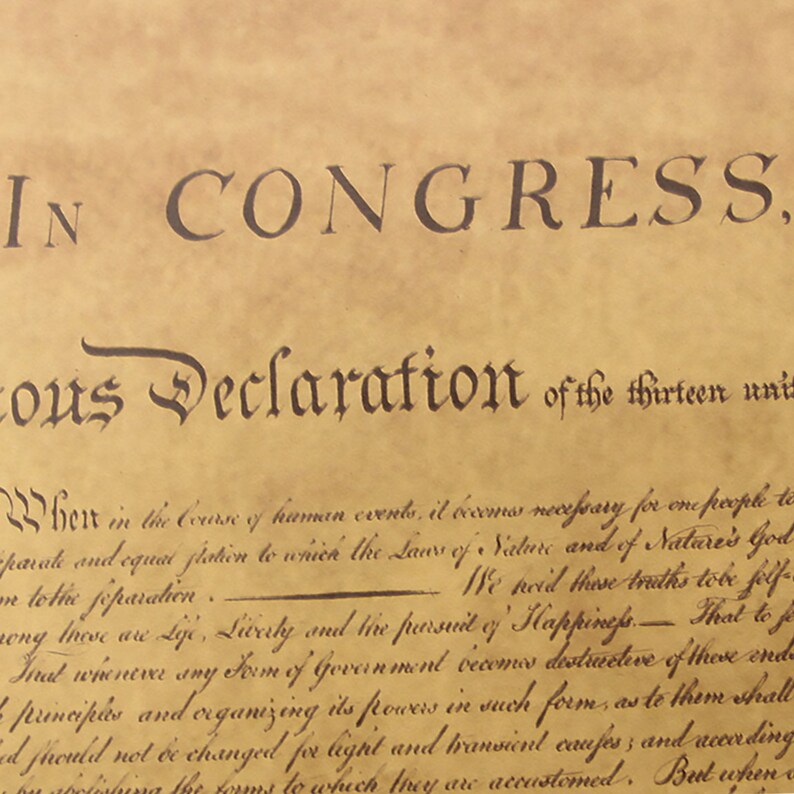 In CONGRESS,
ous Declaration of the thirteen unit
When in the Course of human events, it becomes necessary for one people to
eparate and equal station to which the Laws of Nature and of Nature's God
m to the separation. We hold these truths to be self-
mong these are Life, Liberty and the pursuit of Happiness.— That to se
That whenever any Form of Government becomes destructive of these ends
principles and organizing its powers in such form, as to them shall
ed should not be changed for light and transient causes; and according
by abolishing the forms to which they are accustomed. But when a